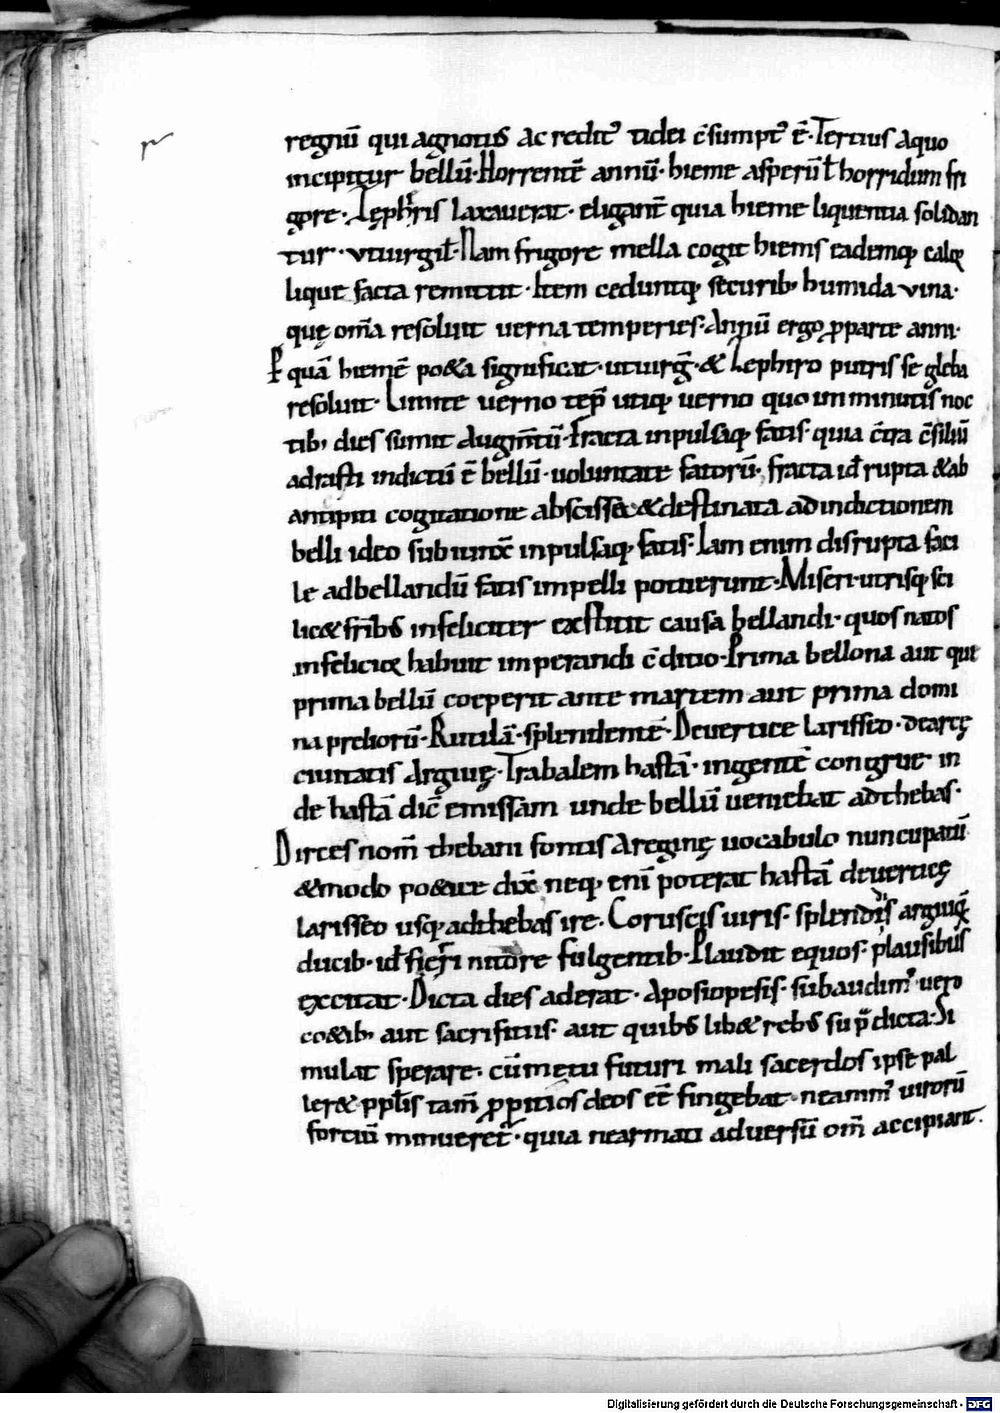 regnū qui agnotus ac redit᷒ tidei c̄sumpt᷒ ē. Tertius aquo
incipitur bellū. Horrentē annū. hieme asperū ł horridum fri
gore. Zęphiris laxauerat. eligant̄ quia hieme liquentia solidan
tur. vt uirgil̄. Nam frigore mella cogit hiems eademq; calor̄
lique facta remittit. Item ceduntq; securib; humida vina.
quę om̄a resoluit uerna temperies. Annū ergo ꝑparte anni.
quā hiemē po&a significat. ut uirḡ. & Zephiro putris se gleba
resoluit. Limite uerno tēp̄ utiq; uerno quo iminminutis noc
tib; dies sumit augm̄tū. Fracta inpulsaq; fatis. quia c̄tra c̄siliū
adrasti indictū ē bellū. uoluntate fatorū. fracta id̄ rupta & ab
antipiti cogitatione abscissa & destinata ad indictionem
belli ideo subiunx̄ inpulsaq; fatis. Iam enim disrupta faci
le adbellandū fatis impelli potuerunt. Miseri. utrisq; sci
lic& frib; infeliciter exstitit causa bellandi. quos natos
infelicior habuit imperandi c̄ditio. Prima bellona aut que
prima bellū coeperit ante martem aut prima domi
na preliorū. Rutilā. splendentē. Deuertice larisseo. de arcę
ciuitatis Argiuę. Trabalem hastā. ingentē congrue in
de hastā dic̄ emissam unde bellū ueniebat adthebas.
Dirces nom̄ thebani fontis Areginę uocabulo nuncupatū
& modo po&ice dix̄ neq; enī poterat hastā deuerticę
larisseo usq; adthebas ire. Coruscis uiris. splendidis argiuoꝝ
ducib. id̄ fieri nitore fulgentib. Plaudit equos. plausibus
excitat. Dicta dies aderat. Aposiopesis. subaudim᷒ uero
co&ib; aut sacrifitiis. aut quib; lib& reb; sup̄dicta. Si
mulat sperare. cū metu futuri mali sacerdos ipse pal
ler& ppl̄is tam̄ ꝓpitios deos eē fingebat. neanim᷒ uirorū
fortiū minueret̄. quia nearmati aduersū om̄ accipiant.
Digitalisierung gefördert durch die Deutsche Forschungsgemeinschaft - DFG